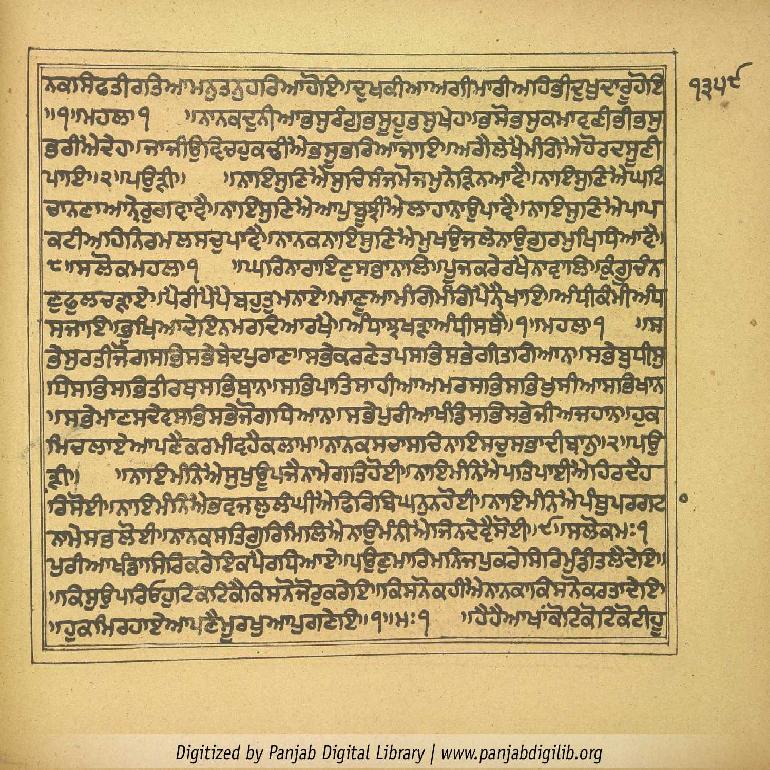 ਨਕਾਸਿਫਤੀਰਤਿਆਮਨੁਤਨੁਹਰਿਆਹੋਇ॥ਦੁਖਕੀਆਅਗੀਮਾਰੀਅਹਿਭੀਦੁਖੁਦਾਰੂਹੋਇ
੧੩੫੯
॥੧॥ਮਹਲਾ੧ ॥ਨਾਨਕਦੁਨੀਆਭਸੁਰੰਗੁਭਸੂਹੂਭਸੁਖੇਹ॥ਭਸੋਭਸੁਕਮਾਵਣੀਭੀਭਸੁ
ਭਰੀਐਦੇਹ॥ਜਾਜੀਉਵਿਚਹੁਕਢੀਐਭਸੂਭਰਿਆਜਾਇ॥ਅਗੈਲੇਖੈਮੰਗਿਐਹੋਰਦਸੂਣੀ
ਪਾਇ॥੨॥ਪਉੜੀ॥ ॥ਨਾਇਸੁਣਿਐਸੁਚਿਸੰਜਮੋਜਮੁਨੇੜਿਨਆਵੈ॥ਨਾਇਸੁਣਿਐਘਟਿ
ਚਾਨਣਾਆਨ੍ਹੇਰੁਗਵਾਵੈ॥ਨਾਇਸੁਣਿਐਆਪੁਬੁਝੀਐਲਾਹਾਨਾਉਪਾਵੈ॥ਨਾਇਸੁਣਿਐਪਾਪ
ਕਟੀਅਹਿਨਿਰਮਲਸਚੁਪਾਵੈ॥ਨਾਨਕਨਾਇਸੁਣਿਐਮੁਖਉਜਲੇਨਾਉਗੁਰਮੁਖਿਧਿਆਵੈ॥
੮॥ਸਲੋਕਮਹਲਾ੧ ॥ਘਰਿਨਾਰਾਇਣੁਸਭਾਨਾਲਿ॥ਪੂਜਕਰੇਰਖੈਨਾਵਾਲਿ॥ਕੁੰਗੂਚੰਨ
ਣੁਫੁਲਚੜਾਏ॥ਪੈਰੀਪੈਪੈਬਹੁਤੁਮਨਾਏ॥ਮਾਣੂਆਮੰਗਿਮੰਗਿਪੈਨੈਖਾਇ॥ਅੰਧੀਕੰਮੀਅੰਧ
ਸਜਾਇ॥ਭੁਖਿਆਦੇਇਨਮਰਦਿਆਰਖੈ॥ਅੰਧਾਝਗੜਾਅੰਧੀਸਥੈ॥੧॥ਮਹਲਾ੧ ॥ਸ
ਭੇਸੁਰਤੀਜੋਗਸਭਿਸਭੇਬੇਦਪੁਰਾਣ॥ਸਭੇਕਰਣੇਤਪਸਭਿਸਭੇਗੀਤਗਿਆਨ॥ਸਭੇਬੁਧੀਸੁ
ਧਿਸਭਿਸਭਿਤੀਰਥਸਭਿਥਾਨ॥ਸਭਿਪਾਤਿਸਾਹੀਆਅਮਰਸਭਿਸਭਿਖੁਸੀਆਸਭਿਖਾਨ
॥ਸਭੇਮਾਣਸਦੇਵਸਭਿਸਭੇਜੋਗਧਿਆਨ॥ਸਭੇਪੁਰੀਆਖੰਡਸਭਿਸਭੇਜੀਅਜਹਾਨ॥ਹੁਕ
ਮਿਚਲਾਏਆਪਣੈਕਰਮੀਵਹੈਕਲਾਮ॥ਨਾਨਕਸਚਾਸਚਿਨਾਇਸਚੁਸਭਾਦੀਬਾਨੁ॥੨॥ਪਉ
ੜੀ॥ ॥ਨਾਇਮੰਨਿਐਸੁਖੁਊਪਜੈਨਾਮੇਗਤਿਹੋਈ॥ਨਾਇਮੰਨਿਐਪਤਿਪਾਈਐਹਿਰਦੈਹ
ਰਿਸੋਈ॥ਨਾਇਮੰਨਿਐਭਵਜਲੁਲੰਘੀਐਫਿਰਿਬਿਘਨੁਨਹੋਈ॥ਨਾਇਮੰਨਿਐਪੰਥੁਪਰਗਟ
ਨਾਮੇਸਭਲੋਈ॥ਨਾਨਕਸਤਿਗੁਰਿਮਿਲਿਐਨਾਉਮੰਨੀਐਜਿਨਦੇਵੈਸੋਈ॥੯॥ਸਲੋਕਮਃ੧
ਪੁਰੀਆਖੰਡਾਸਿਰਿਕਰੇਇਕਪੈਰਿਧਿਆਏ॥ਪਉਣੁਮਾਰਿਮਨਿਜਪੁਕਰੇਸਿਰਿਮੁੰਡੀਤਲੈਦੇਇ॥
॥ਕਿਸੁਉਪਰਿਓਹੁਟਿਕਟਿਕੈਕਿਸਨੋਜੋਰੁਕਰੇਇ॥ਕਿਸਨੋਕਹੀਐਨਾਨਕਾਕਿਸਨੋਕਰਤਾਦੇਇ
॥ਹੁਕਮਿਰਹਾਏਆਪਣੈਮੂਰਖੁਆਪੁਗਣੇਇ॥੧॥ਮਃ੧ ॥ਹੈਹੈਆਖਾਂਕੋਟਿਕੋਟਿਕੋਟੀਹੂ
Digitized by Panjab Digital Library | www.panjabdigilib.org